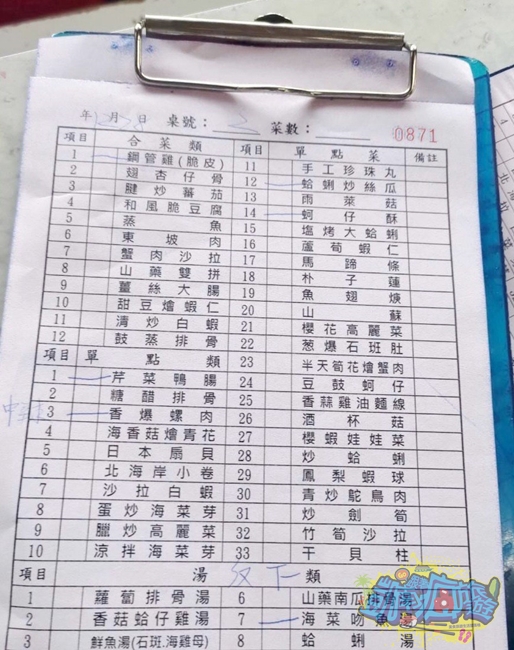 年 月 日 桌號： 菜數： 0871
項目 合菜類 項目 單點菜 備註
1 鋼管雞(脆皮) 11 手工珍珠丸
2 翅杏仔骨 12 蛤蜊炒絲瓜
3 腱炒蕃茄 13 雨菜菇
4 和風脆豆腐 14 蚵仔酥
5 蒸魚 15 塩烤大蛤蜊
6 東坡肉 16 蘆筍蝦仁
7 蟹肉沙拉 17 馬蹄條
8 山藥雙拼 18 朴子蓮
9 薑絲大腸 19 魚翅焿
10 甜豆燴蝦仁 20 山蘇
11 清炒白蝦 21 櫻花高麗菜
12 鼓蒸排骨 22 葱爆石班肚
項目 單點類 23 半天筍花燴蟹肉
1 芹菜鴨腸 24 豆鼓蚵仔
2 糖醋排骨 25 香蒜雞油麵線
3 香爆螺肉 26 酒杯菇
4 海香菇燴青花 27 櫻蝦娃娃菜
5 日本扇貝 28 炒蛤蜊
6 北海岸小卷 29 鳳梨蝦球
7 沙拉白蝦 30 青炒鴕鳥肉
8 蛋炒海菜芽 31 炒劍筍
9 臘炒高麗菜 32 竹筍沙拉
10 涼拌海菜芽 33 干貝柱
項目 湯類
1 蘿蔔排骨湯 6 山藥南瓜排骨湯
2 香菇蛤仔雞湯 7 海菜吻魚湯
3 鮮魚湯(石斑.海雞母) 8 蛤蜊湯